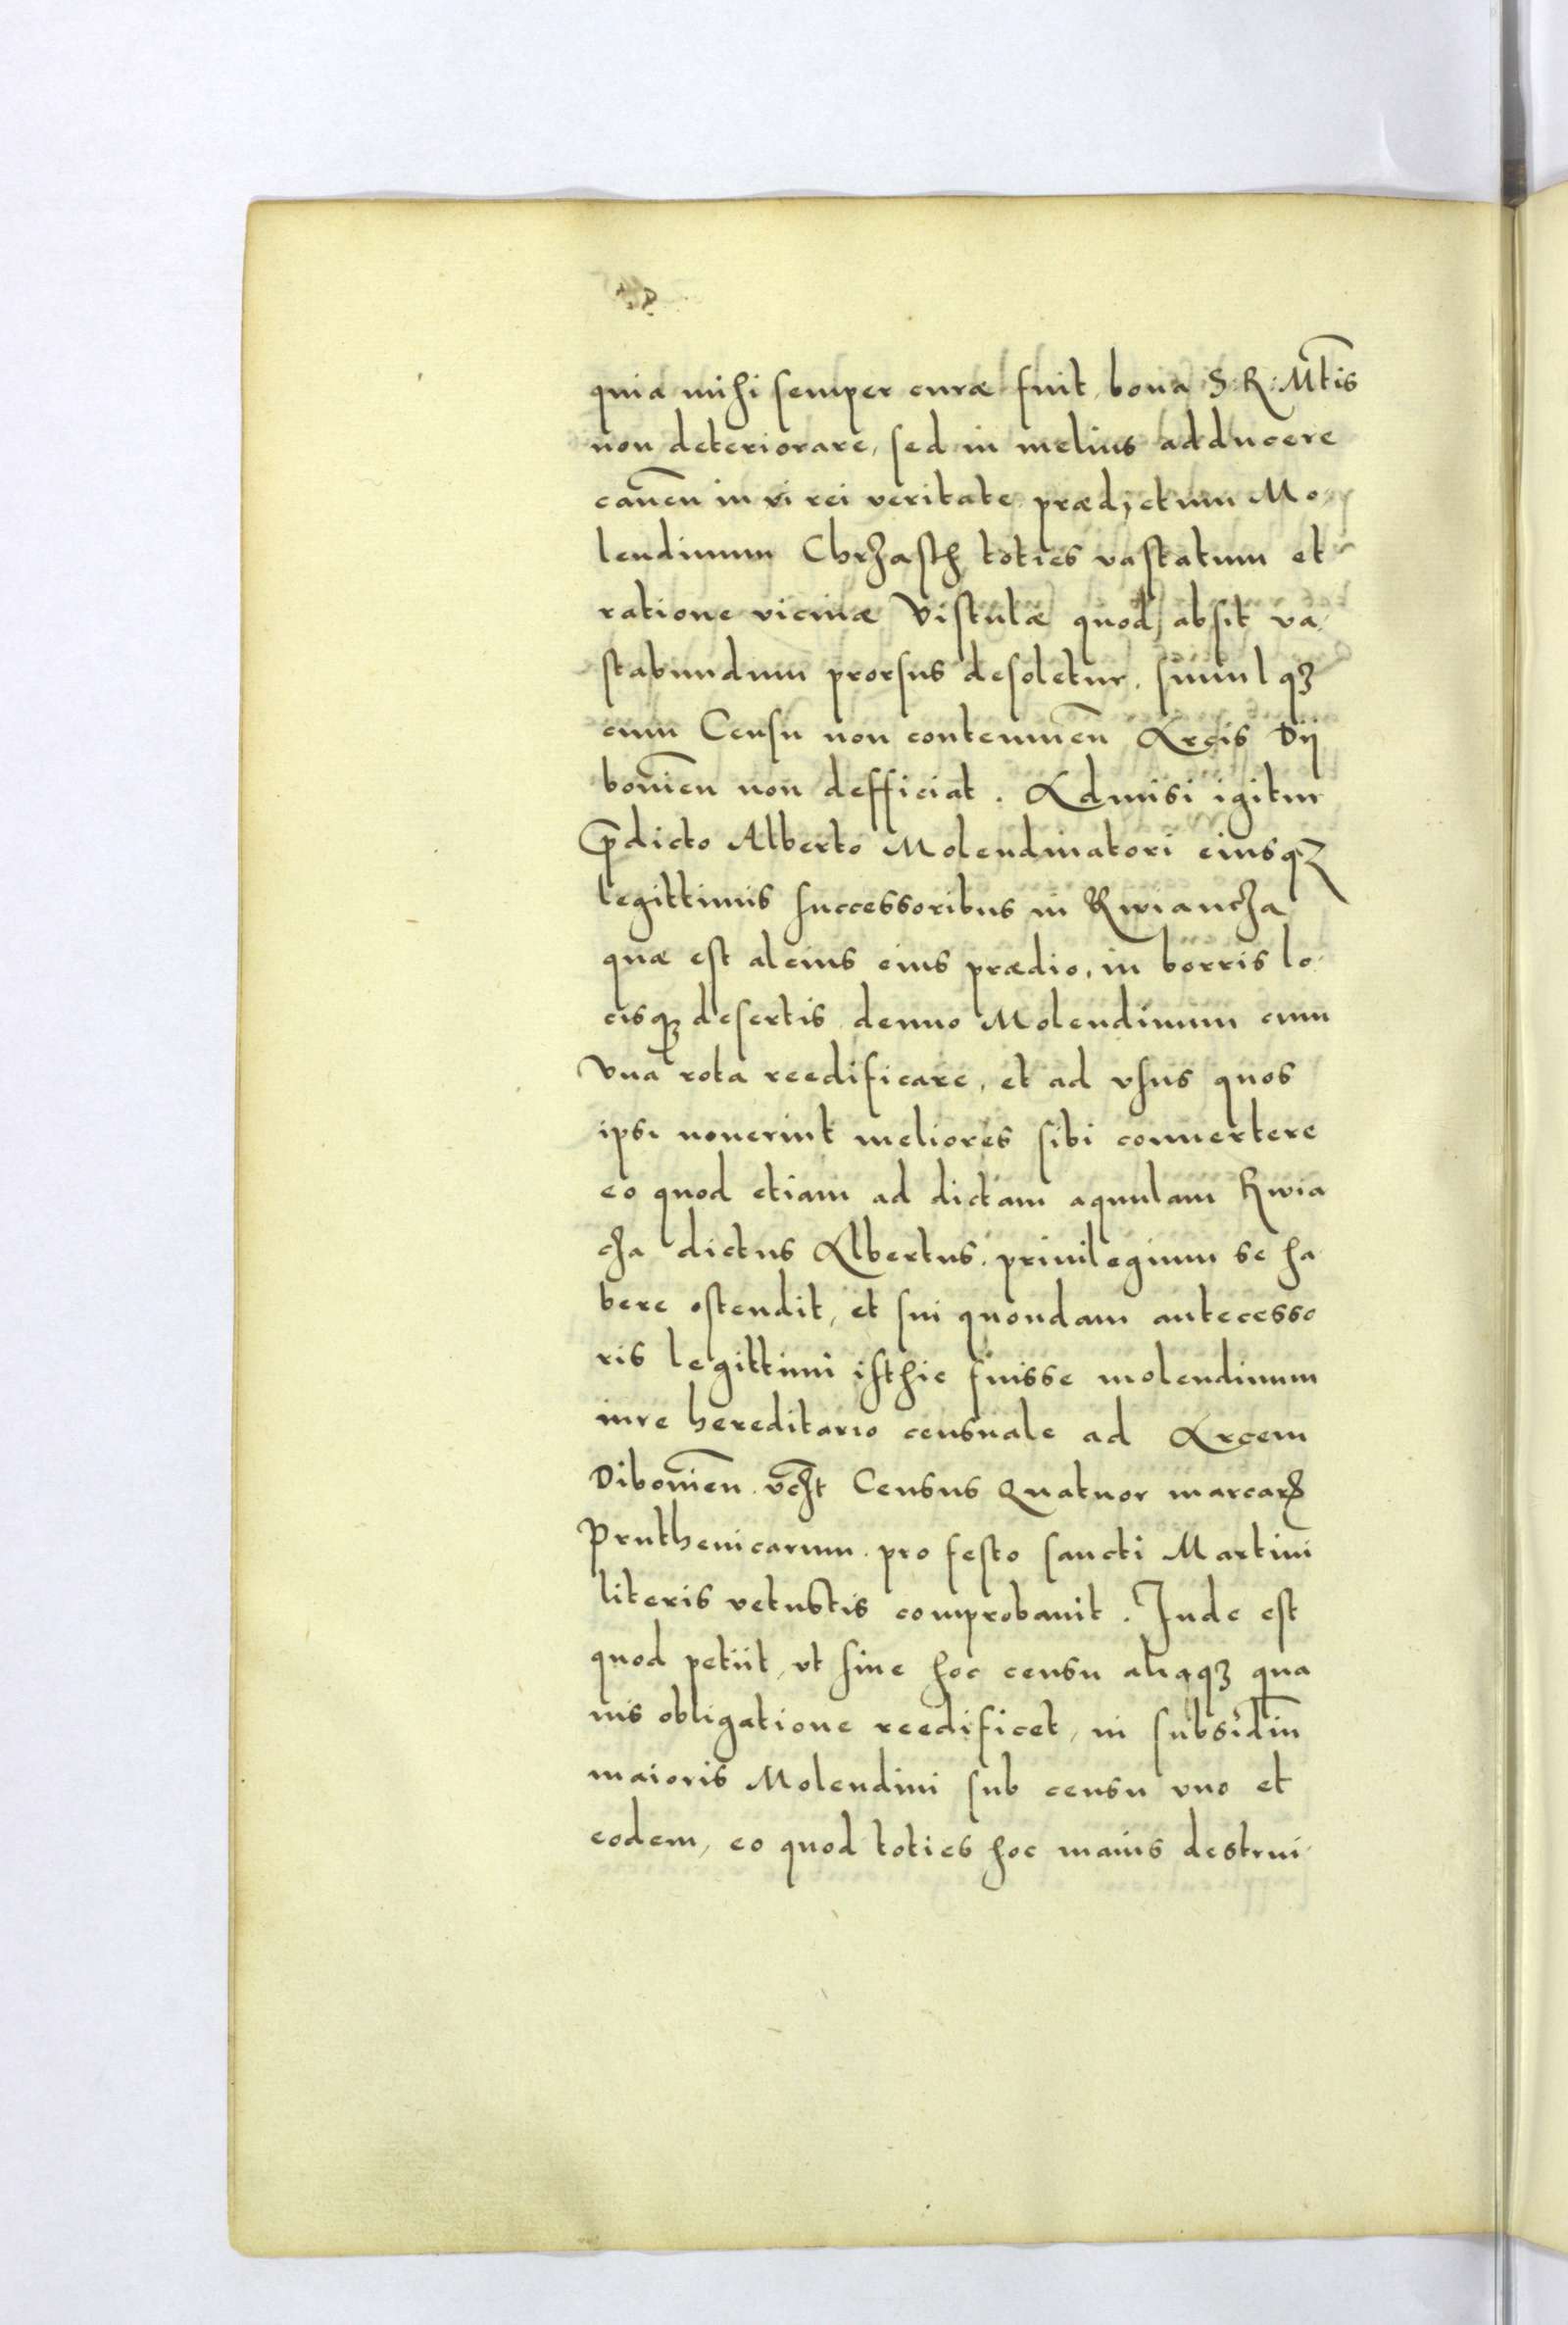 quia mihi semper curæ fuit, bona S: R: Mt̃is
non deteriorare, sed in melius adducere
caueñ in vi rei veritate prædictum Mo-
lendinum Chrząsth toties vastatum et
ratione vicinæ Vistulæ quod, absit va-
stabundum prorsus desoletur, simulqz
cum Censu non contemneñ Arcis Dij
bouieñ non defficiat. Admisi igitur
p̃dicto Alberto Molendinatori eiusqz
legittimis successoribus in Rwiancza
quæ est alcius eius prædio, in borris lo-
cisqz desertis denuo Molendinum cum
vna rota reedificare, et ad vsus quos
ipsi nouerint meliores sibi conuertere
eo quod etiam ad dictam aqnulam Rwia
cza dictus Albertus, priuilegium se ha-
bere ostendit, et sui quondam antecesso
ris legittimi isthic fuisse molendinum
iure hereditario censuale ad Arcem
Dibouieñ Census Quatuor marcarꝝ
Pruthenicarum pro festo sancti Martini
literis vetustis comprobauit. Inde est
quod petiit, vt sine hoc censu aliaqz qua
uis obligatione reedificet, in subsidiũ
maioris Molendini sub censu vno et
eodem, eo quod toties hoc maius destrui-